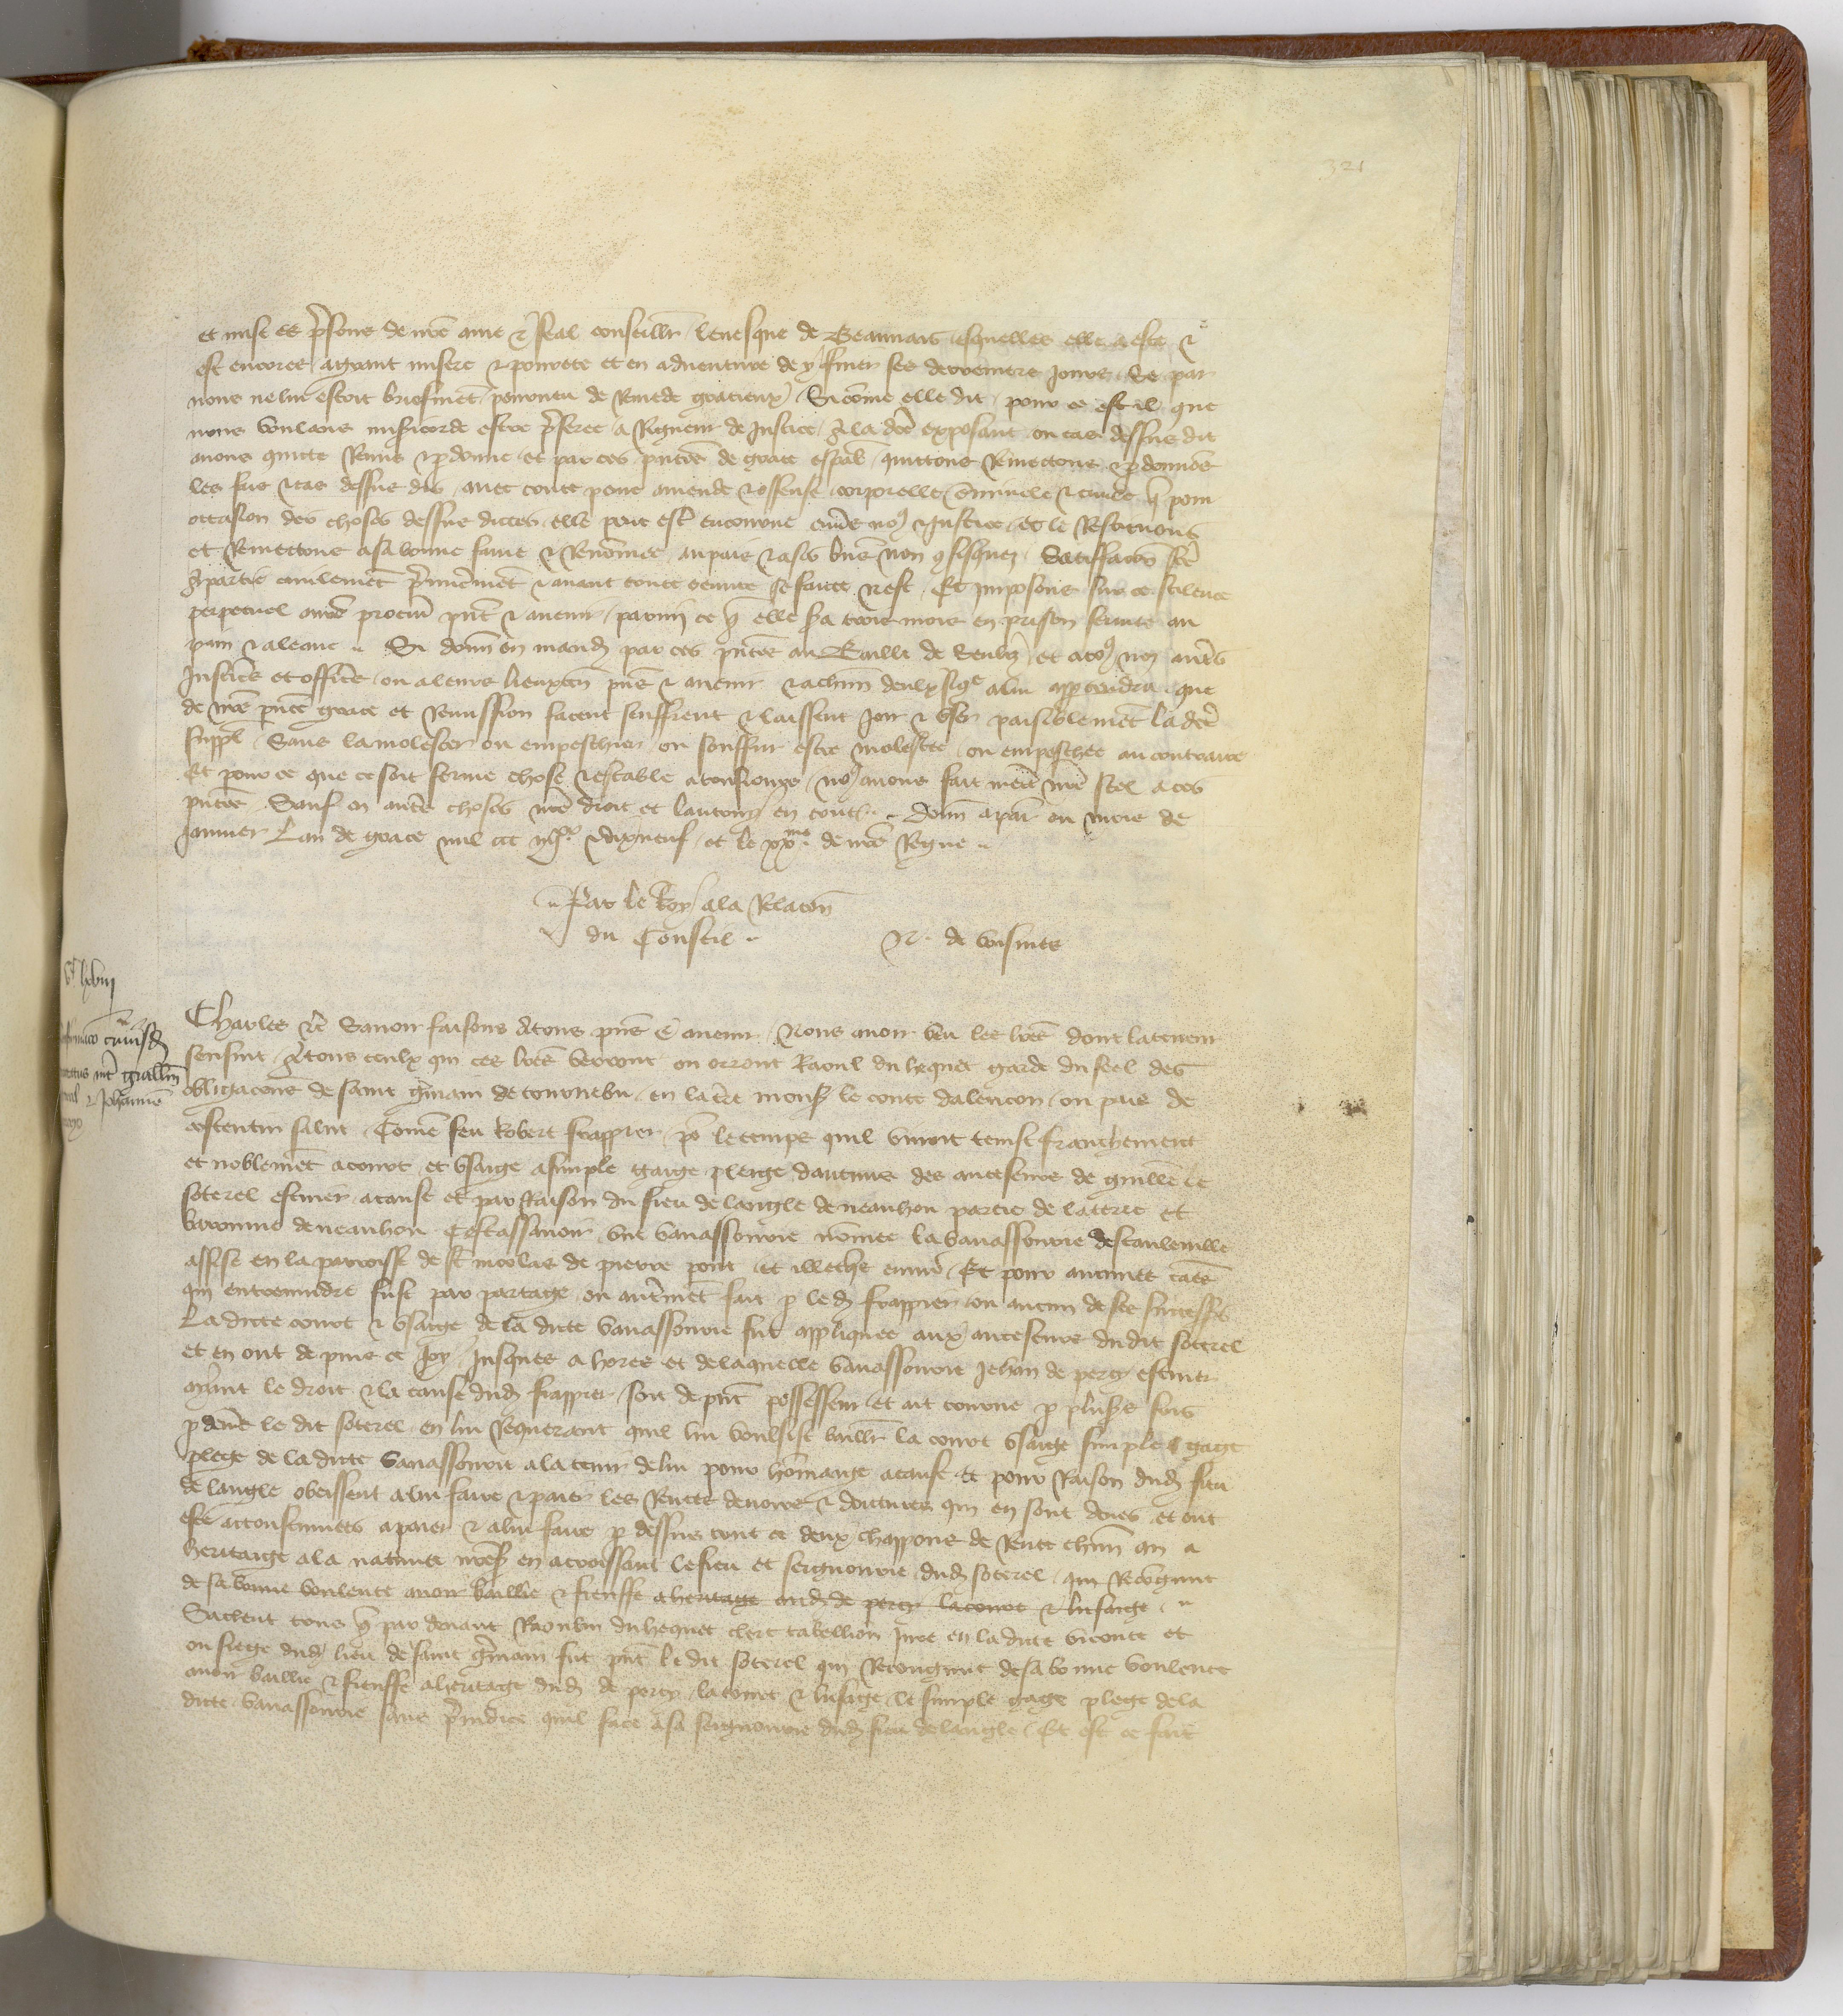 321
et mise es prisons de nre ame & feal conseillr levesque de Beauvais esquelles elle a este &
est encores a grant misere & povrete et en adventure de y finer ses derreniers jours Se par
nous ne lui estoit briefment pourveu de remede gracieux Sicome elle dit pour ce est il que
nous voulans misericorde estre preferee a Rigueur de Justice a la dce exposant ou cas dessus dit
avons quicte Remis & pdonne et par ces pntes de grace espal quittons Remettons & pdonnons
les fais & cas dessus dis avec toute peine amende & offense corporelle criminele & civile q pour
occasion des choses dessus dictes elle peut estr encourue envs nos & Justice et le Restituons
et Remettons a sa bonne fame & Renomee au pais & a ses biens non confisquez Satisfaccion fce
a partie civilement premierement & avant toute euvre se faicte n est Et Imposons sur ce scilence
perpetuel a nre procur pnt & avenir parmi ce q elle sra trois mois en prison fermee au
pain & a leaue Si donn en mand par ces pntes au Bailli de Senliz et a tos noz autres
Justiciers et officiers ou a leurs lieuxten pns & avenir & a chun deulx sicoe a lui apptendra que
de nre pnte grace et Remission facent seuffrent & laissent Joir & user paisiblement la dce
suppl Sans la molester ou empeschier ou souffrir estre molestee ou empeschee au contraire
Et pour ce que ce soit ferme chose & estable a tousiours nos avons fait mectre nre seel a ces
pntes Sauf en autres choses nre droit et lautruy en toutes Donn a paris ou mois de
Janvier Lan de grace mil ccc iiiixx & dixneuf et le xxme de nre Regne
Par le Roy a la Relacion
du Conseil N. de voisines
vc lxviii
Charles &c Savoir faisons a tous pns & avenir Nous avoir veu les lres dont la teneur
sensuit A tous ceulx qui ces lres verront ou orront Raoul du hequet garde du seel des
obligacions de saint Germain de tournebu en la tre monsr le conte dalencon ou pais de
costentin salut Come feu Robert frappier po le temps quil vivoit tenist franchement
et noblement a court et usaige a simple gaige pleige daucuns des ancesseurs de guillme le
soterel escuier a cause et par Raison du fieu de langle de neauhou partie de la terre et
baronnie de neauhou Cestassavoir une vavassourie nomee la vavassourie descauleville
assise en la parroisse de st nicolas de pierre pont et illeches environ Et pour aucunes caes
qui entrevindre fust par partage ou autrement fait p led frappier ou aucun de ses successrs
La dicte court & usaige de la dicte vavassourie fut appliquee aux ancesseurs dudit soterel
et en ont de puis ce Joy Jusques a hores et de laquelle vavassourie Jehan de percy escuier
aiant le droit & la cause dud frappier soit de pnt possesseur et ait courue p plusrs fois
p devs le dit soterel en lui Requerant quil lui voulsist baillr la court usaige simple gage
plege de ladicte vavassourie a la tenir de lui pour homaige a cause Et pour Raison dud fieu
de langle obeissent a lui faire & paier les Rentes devoirs & droitures qui en sont deues et ont
este acoustumees a paier & a lui faire p dessus tout ce deux chappons de Rente chun an a
heritaige a la nativite nresr en acroissant le fieu et seignourie dud soterel qui Recongnut
de sa bonne voulente avoir baillie & fieuffe a heritage aud de percy la court & lusaige
Sachent tous q par devant Raoulin du hequet clerc tabellion Jure en la dicte viconte et
ou siege dud lieu de saint Germain fut pnt le dit soterel qui Recongnut de sa bonne voulente
avoir baillie & fieuffe a heritage dud de percy la court & lusage le simple gage plege de la
dicte vavassourie sans preiudice quil face a sa seignourie dud fieu de langle Et est ce fait